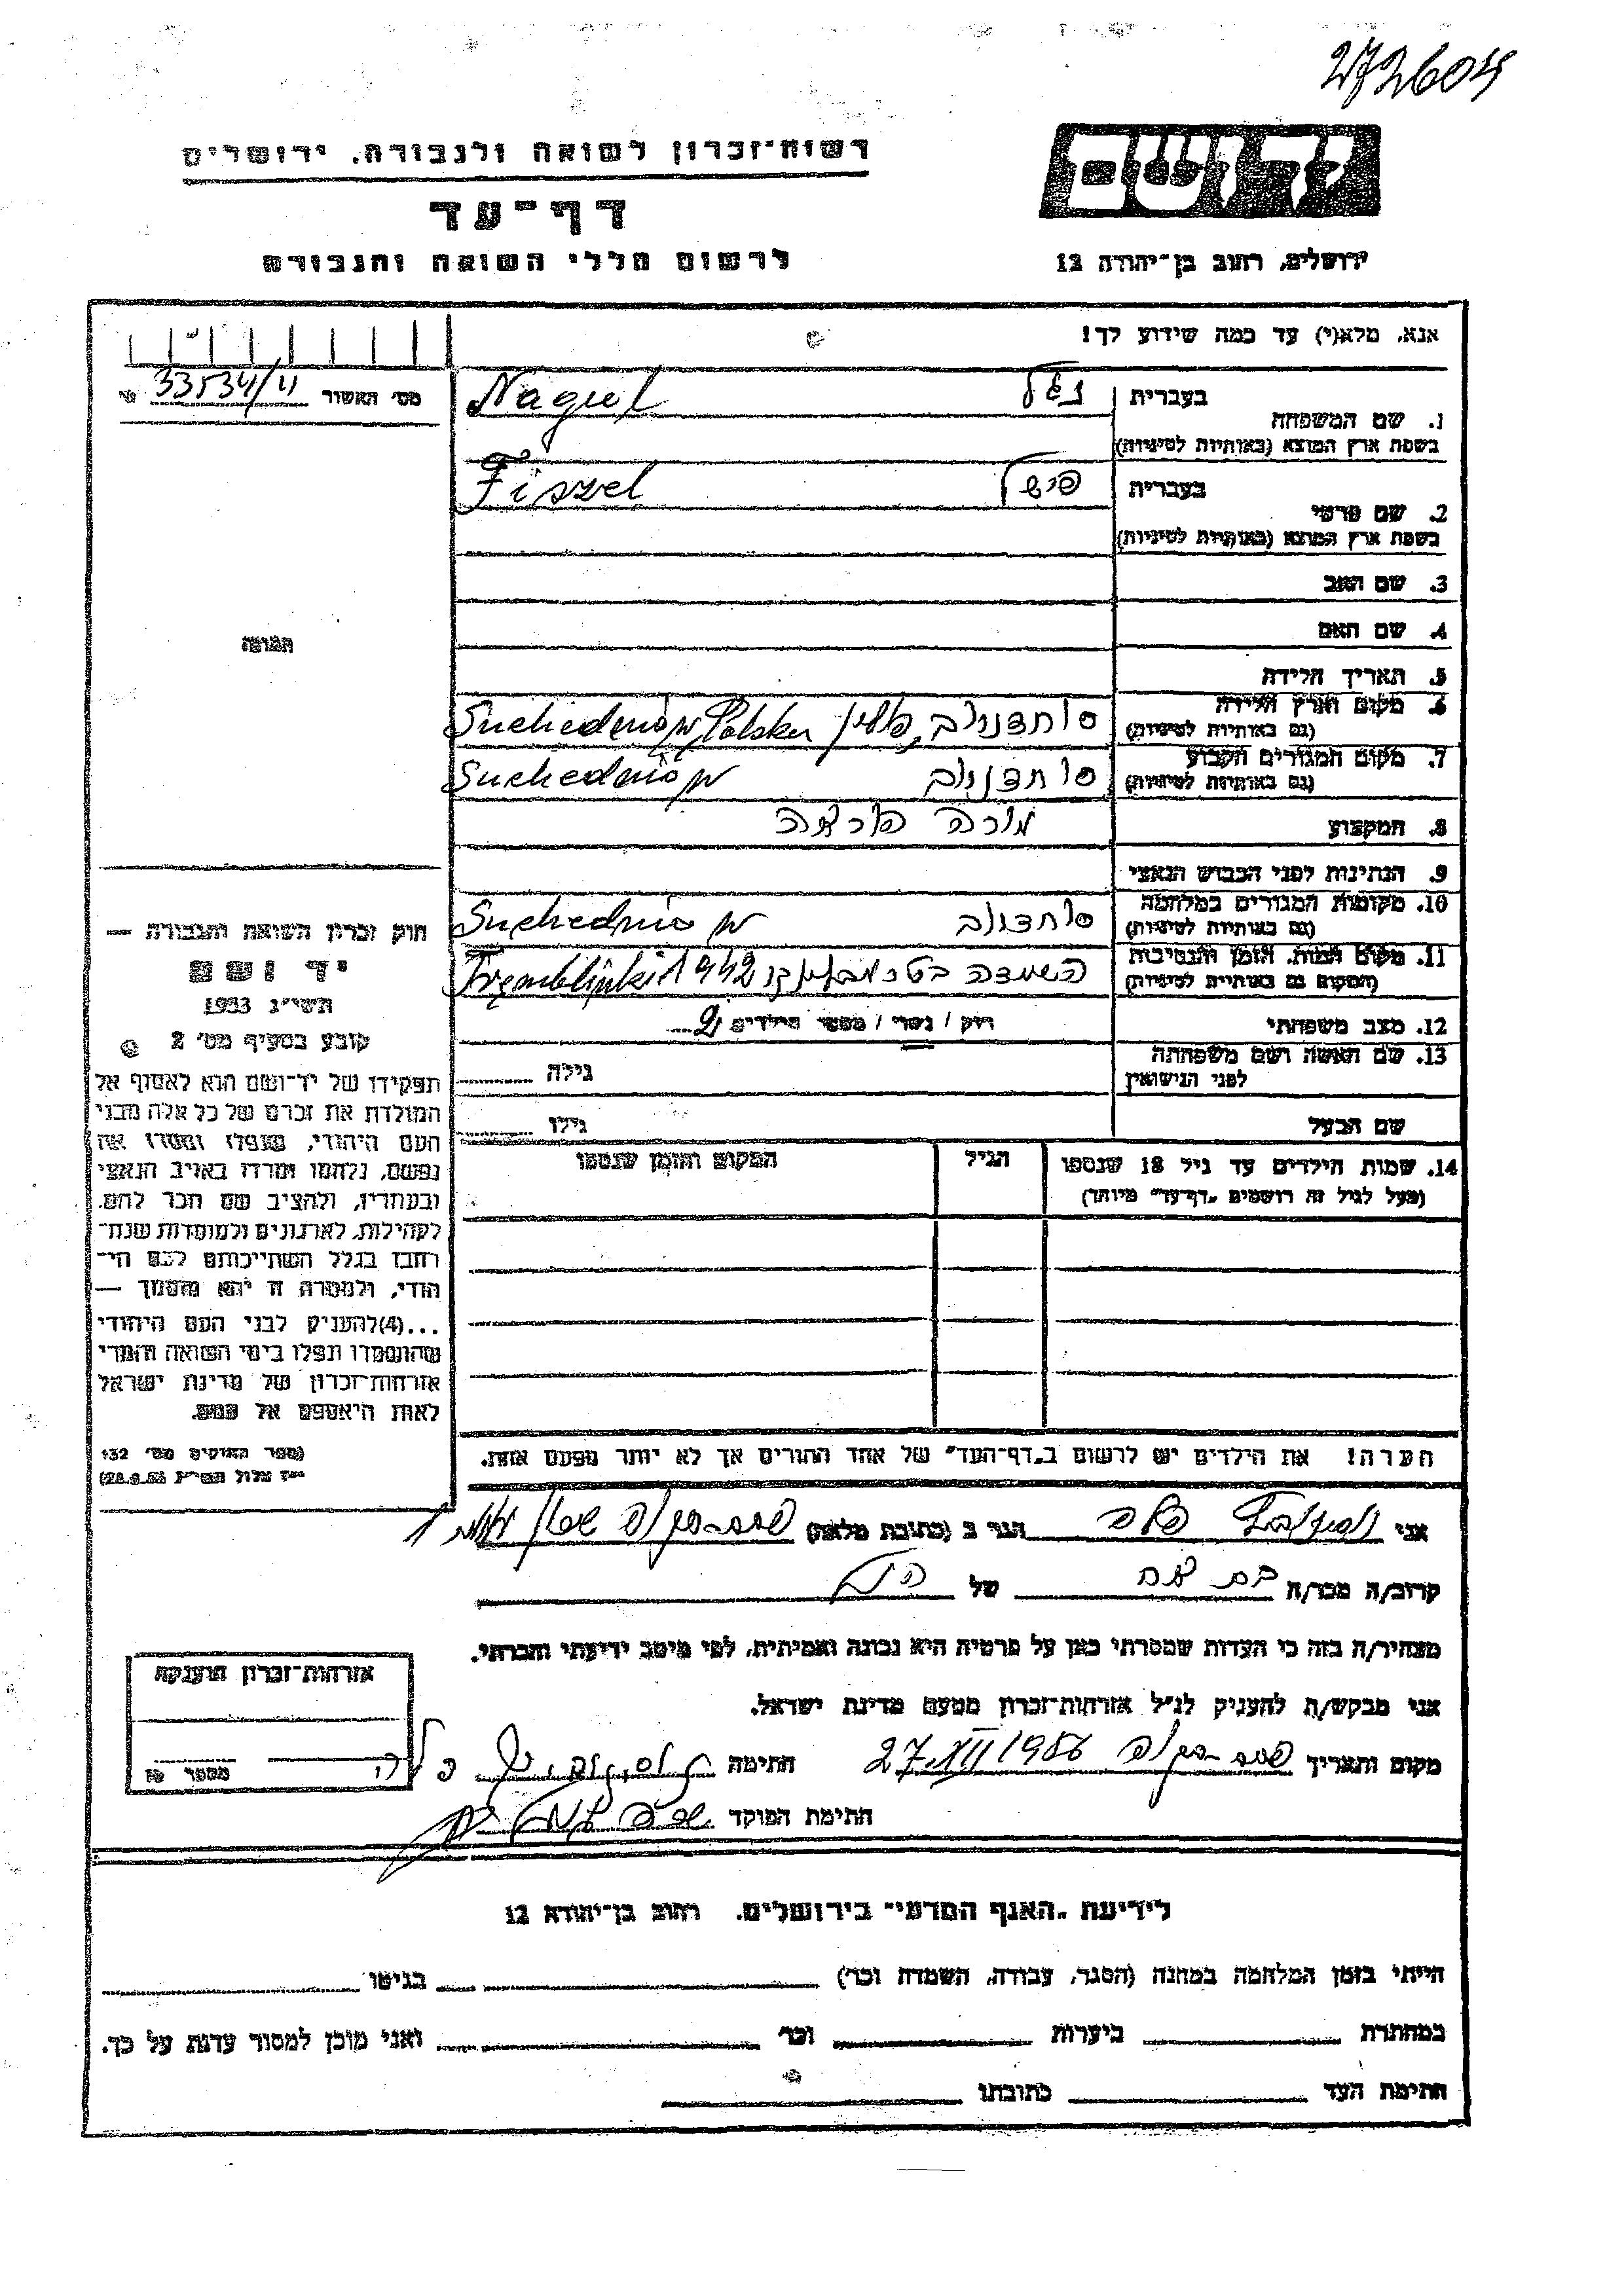 272604
רשות-זכרון לשואה ולגבורה, ירושלים
יד ושם
דף-עד
לרשום חללי השואה והגבורה
ירושלים, רחוב בן-יהודה 12
אנא, מלא(י) עד כמה שידוע לך!
מס' האשור 33534/11
1. שם המשפחה בעברית נגל
בשפת ארץ המוצא (באותיות לטיניות) Nagiel
2. שם פרטי בעברית פישל
בשפת ארץ המוצא (באותיות לטיניות) Fiszel
3. שם האב
4. שם האם
תמונה
5. תאריך הלידה
6. מקום וארץ הלידה (גם באותיות לטיניות) פולין Suchedniów, Polska
7. מקום המגורים הקבוע (גם באותיות לטיניות) Suchedniów
8. המקצוע מורה
9. הנתינות לפני הכבוש הנאצי
10. מקומות המגורים במלחמה (גם באותיות לטיניות) Suchedniów
11. מקום המות, הזמן והנסיבות (המקום גם באותיות לטיניות) השמדה 1942 Tremblinki
12. מצב משפחתי רוק / נשוי / מספר הילדים 2
13. שם האשה ושם משפחתה לפני הנישואין גילה
שם הבעל גילו
14. שמות הילדים עד גיל 18 שנספו הגיל המקום והזמן שנספו
(מעל לגיל זה רושמים "דף-עד" מיוחד)
חוק זכרון השואה והגבורה —
יד ושם
תשי"ג 1953
קובע בסעיף מס' 2
תפקידו של יד-ושם הוא לאסוף אל
המולדת את זכרם של כל אלה מבני
העם היהודי, שנפלו ומסרו את
נפשם, נלחמו ומרדו באויב הנאצי
ובעוזריו, ולהציב שם וזכר להם,
לקהילות, לארגונים ולמוסדות שנח-
רבו בגלל השתייכותם לעם הי-
הודי, ולמטרה זו יהא מוסמך —
...(4)להעניק לבני העם היהודי
שהושמדו ונפלו בימי השואה והמרי
אזרחות-זכרון של מדינת ישראל
לאות היאספם אל עמם.
(ספר החוקים מס' 132
י"ז אלול תשי"ג 28.8.53)
הערה! את הילדים יש לרשום ב"דף-העד" של אחד ההורים אך לא יותר מפעם אחת.
אני הגר ב (כתובת מלאה)
קרוב/ה מכר/ה בת אח של
מצהיר/ה בזה כי העדות שמסרתי כאן על פרטיה היא נכונה ואמיתית, לפי מיטב ידיעתי והכרתי.
אני מבקש/ת להעניק לנ"ל אזרחות-זכרון מטעם מדינת ישראל.
מקום ותאריך 27.XII 1956 חתימה
חתימת הפוקד
אזרחות-זכרון הוענקה
מספר
לידיעת "האגף המדעי" בירושלים, רחוב בן-יהודא 12
הייתי בזמן המלחמה במחנה (הסגר, עבודה, השמדה וכו') בגיטו
במחתרת ביערות וכו' ואני מוכן למסור עדות על כך.
חתימת העד כתובתו